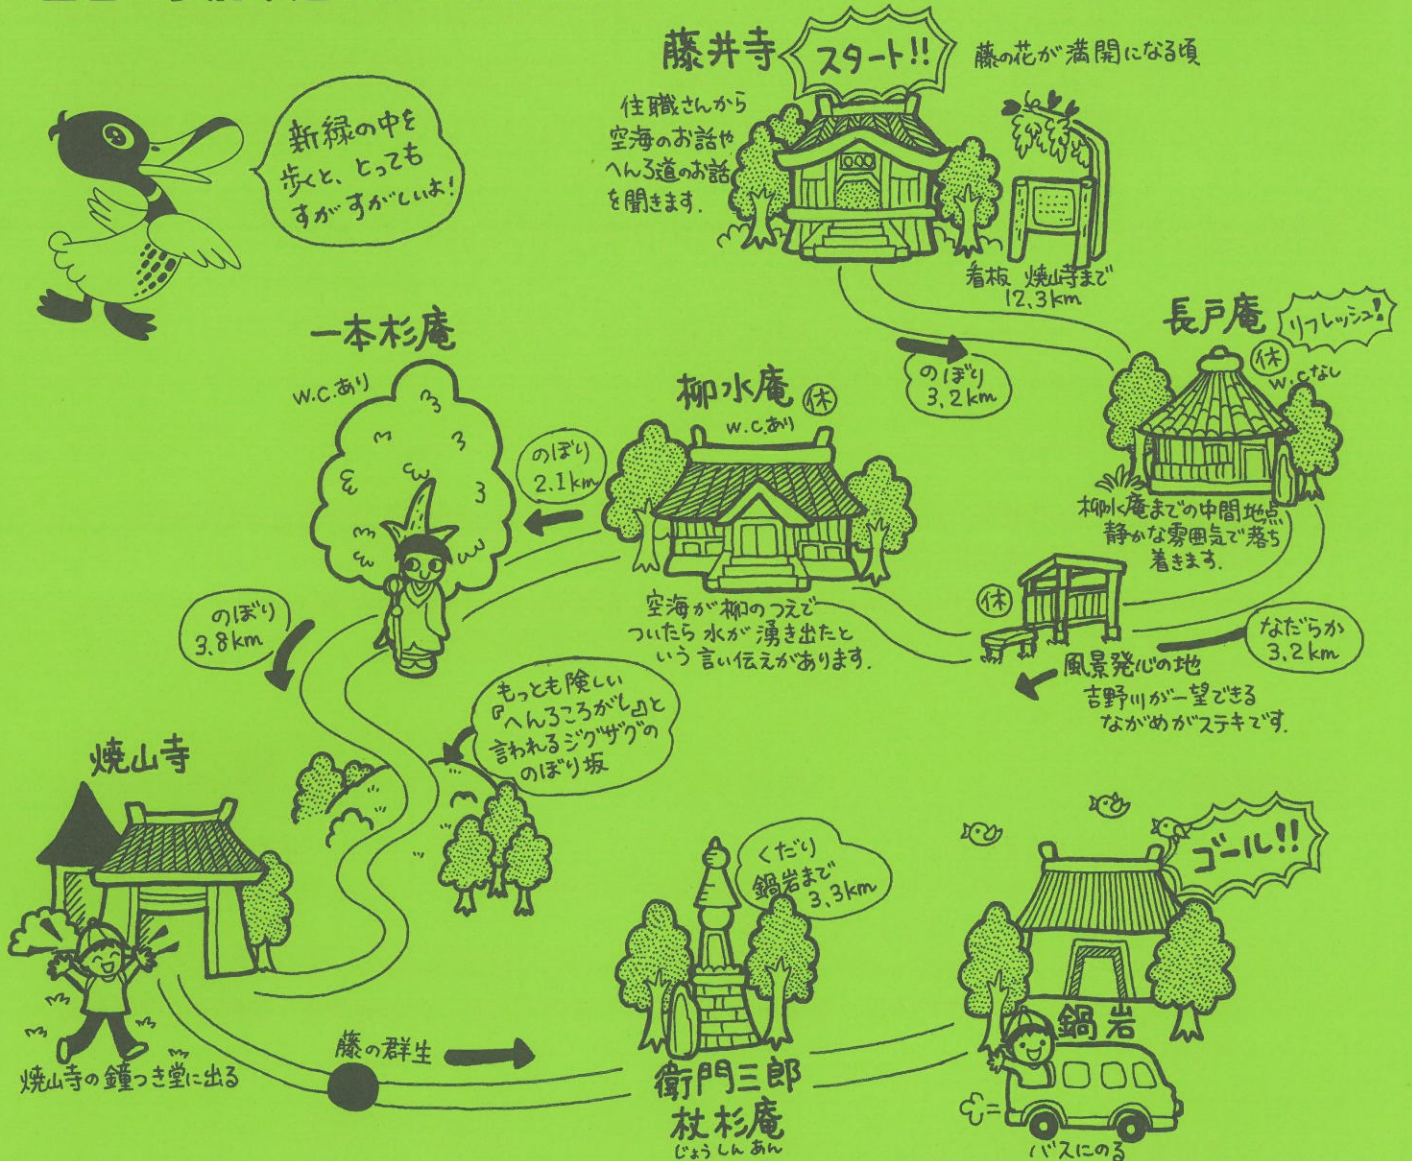 藤井寺
スタート!!
藤の花が満開になる頃
住職さんから
空海のお話や
へんろ道のお話
を聞きます.
看板 焼山寺まで
12.3km
新緑の中を
歩くと、とっても
すがすがしいよ!
のぼり
3.2km
長戸庵
リフレッシュ!
休
W.Cなし
柳水庵までの中間地点
静かな雰囲気で落ち
着きます.
なだらか
3.2km
休
風景発心の地
吉野川が一望できる
ながめがステキです.
柳水庵
休
W.C.あり
空海が柳のつえで
ついたら水が湧き出たと
いう言い伝えがあります.
のぼり
2.1km
一本杉庵
W.C.あり
のぼり
3.8km
もっとも険しい
『へんろころがし』と
言われるジグザグの
のぼり坂
焼山寺
焼山寺の鐘つき堂に出る
藤の群生
くだり
鍋岩まで
3.3km
衛門三郎
杖杉庵
じょうしんあん
ゴール!!
鍋岩
バスにのる